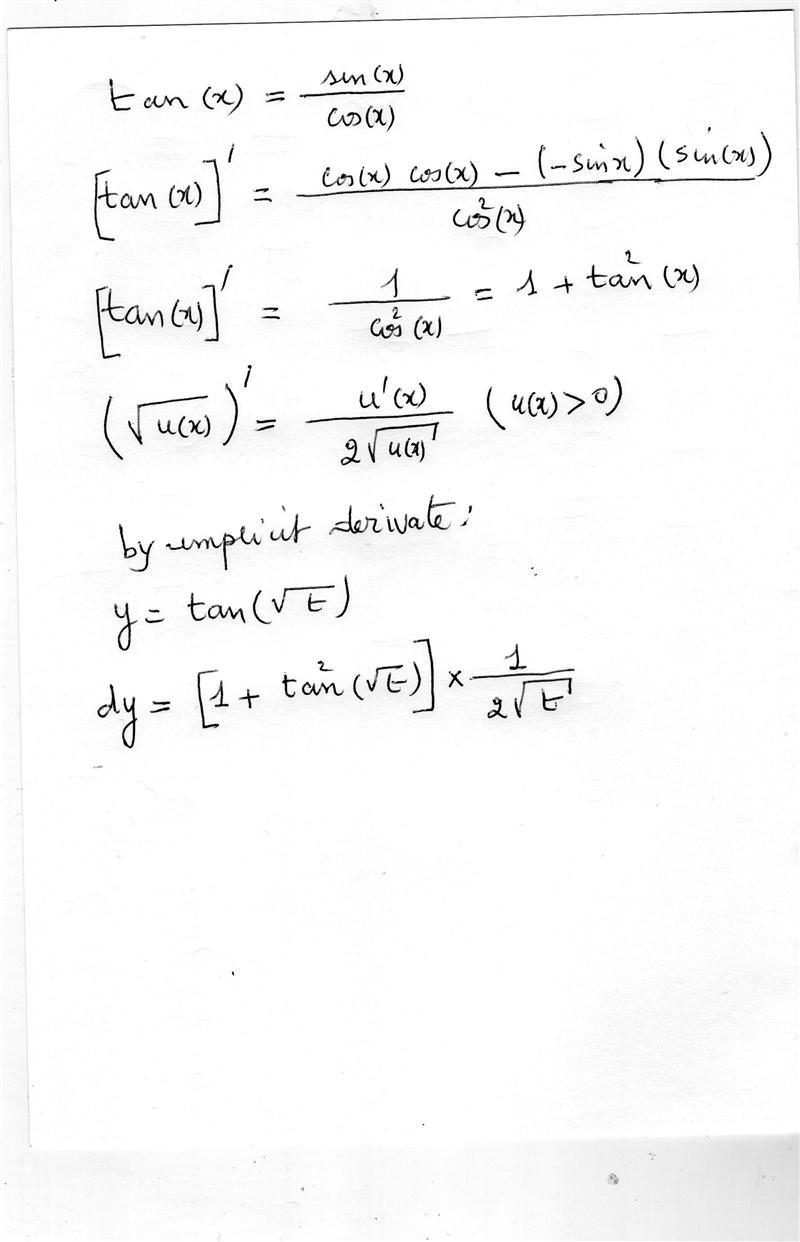 tan(x) = sin(x)/cos(x)
[tan(x)]' = (cos(x) cos(x) - (-sinx)(sin(x)))/cos²(x)
[tan(x)]' = 1/cos²(x) = 1 + tan²(x)
(√u(x))' = u'(x)/(2√u(x)) (u(x)>0)
by implicit derivate:
y = tan(√t)
dy = [1 + tan²(√t)] × 1/(2√t)